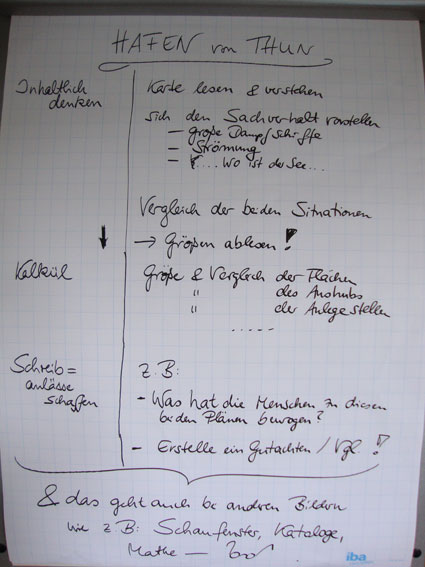 HAFEN von THUN
Inhaltlich denken
Karte lesen & verstehen
sich den Sachverhalt vorstellen
– große Dampfschiffe
– Strömung
– .... wo ist der See...
Vergleich der beiden Situationen
→ Größen ablesen!
Kalkül
Größe & Vergleich der Flächen
" des Aushubs
" der Anlegestellen
.....
Schreib=
anlässe
schaffen
z.B:
- Was hat die Menschen zu diesen
beiden Plänen bewogen?
- Erstelle ein Gutachten / Vgl. !
& das geht auch bei anderen Bildern
wie z.B: Schaufenster, Kataloge,
Mathe –
iba